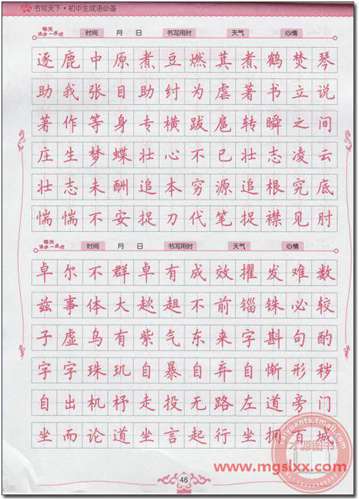 书写天下·初中生成语必备
每天进步一点点 时间 月 日 书写用时 天气 心情
逐鹿中原煮豆燃萁煮鹤焚琴
助我张目助纣为虐著书立说
著作等身专横跋扈转瞬之间
庄生梦蝶壮心不已壮志凌云
壮志未酬追本穷源追根究底
惴惴不安捉刀代笔捉襟见肘
每天进步一点点 时间 月 日 书写用时 天气 心情
卓尔不群卓有成效擢发难数
兹事体大趑趄不前锱铢必较
子虚乌有紫气东来字斟句酌
字字珠玑自暴自弃自惭形秽
自出机杼走投无路左道旁门
坐而论道坐言起行坐拥百城
46
www.mgslxx.com